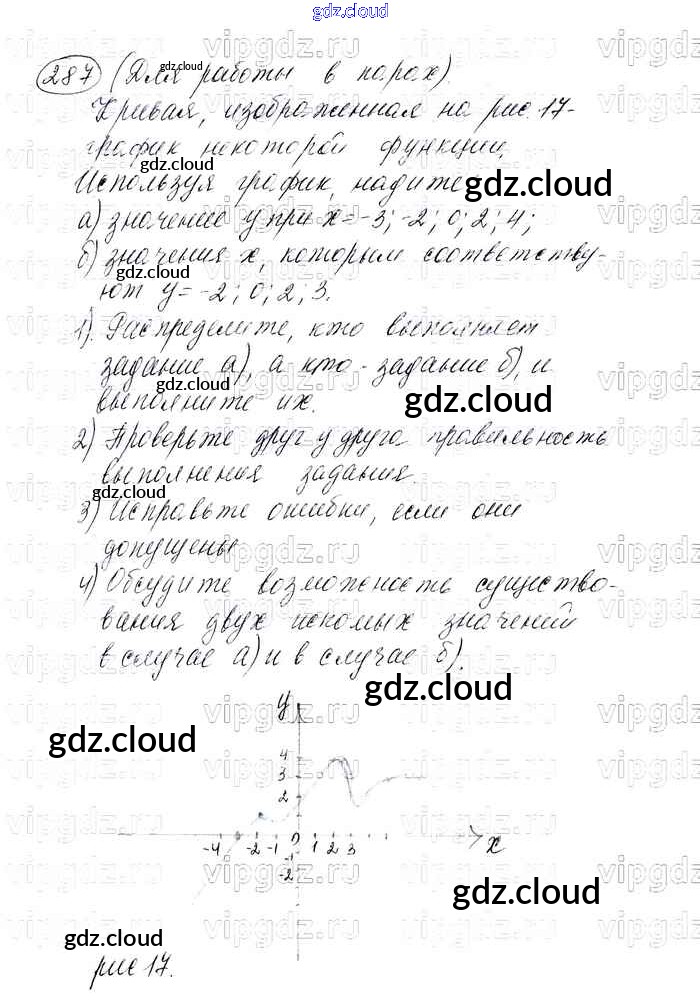 gdz.cloud
287 (Для работы в парах).
Кривая, изображенная на рис. 17-
график некоторой функции.
Используя график, надите
а) значение y при x = -3; -2; 0; 2; 4;
б) значения x, которым соответству-
ют y = -2; 0; 2; 3.
1) Распределите, кто выполняет
задание а), а кто - задание б), и
выполните их.
2) Проверьте друг у друга правильность
выполнения задания.
3) Исправьте ошибки, если они
допущены
4) Обсудите возможность существо-
вания двух искомых значений
в случае а) и в случае б).
y
4
3
2
-4 -2 -1 0 1 2 3 x
-1
-2
рис 17.
gdz.cloud
gdz.cloud
gdz.cloud
gdz.cloud
gdz.cloud
gdz.cloud
gdz.cloud
gdz.cloud
gdz.cloud
gdz.cloud
gdz.cloud
gdz.cloud
vipgdz.ru